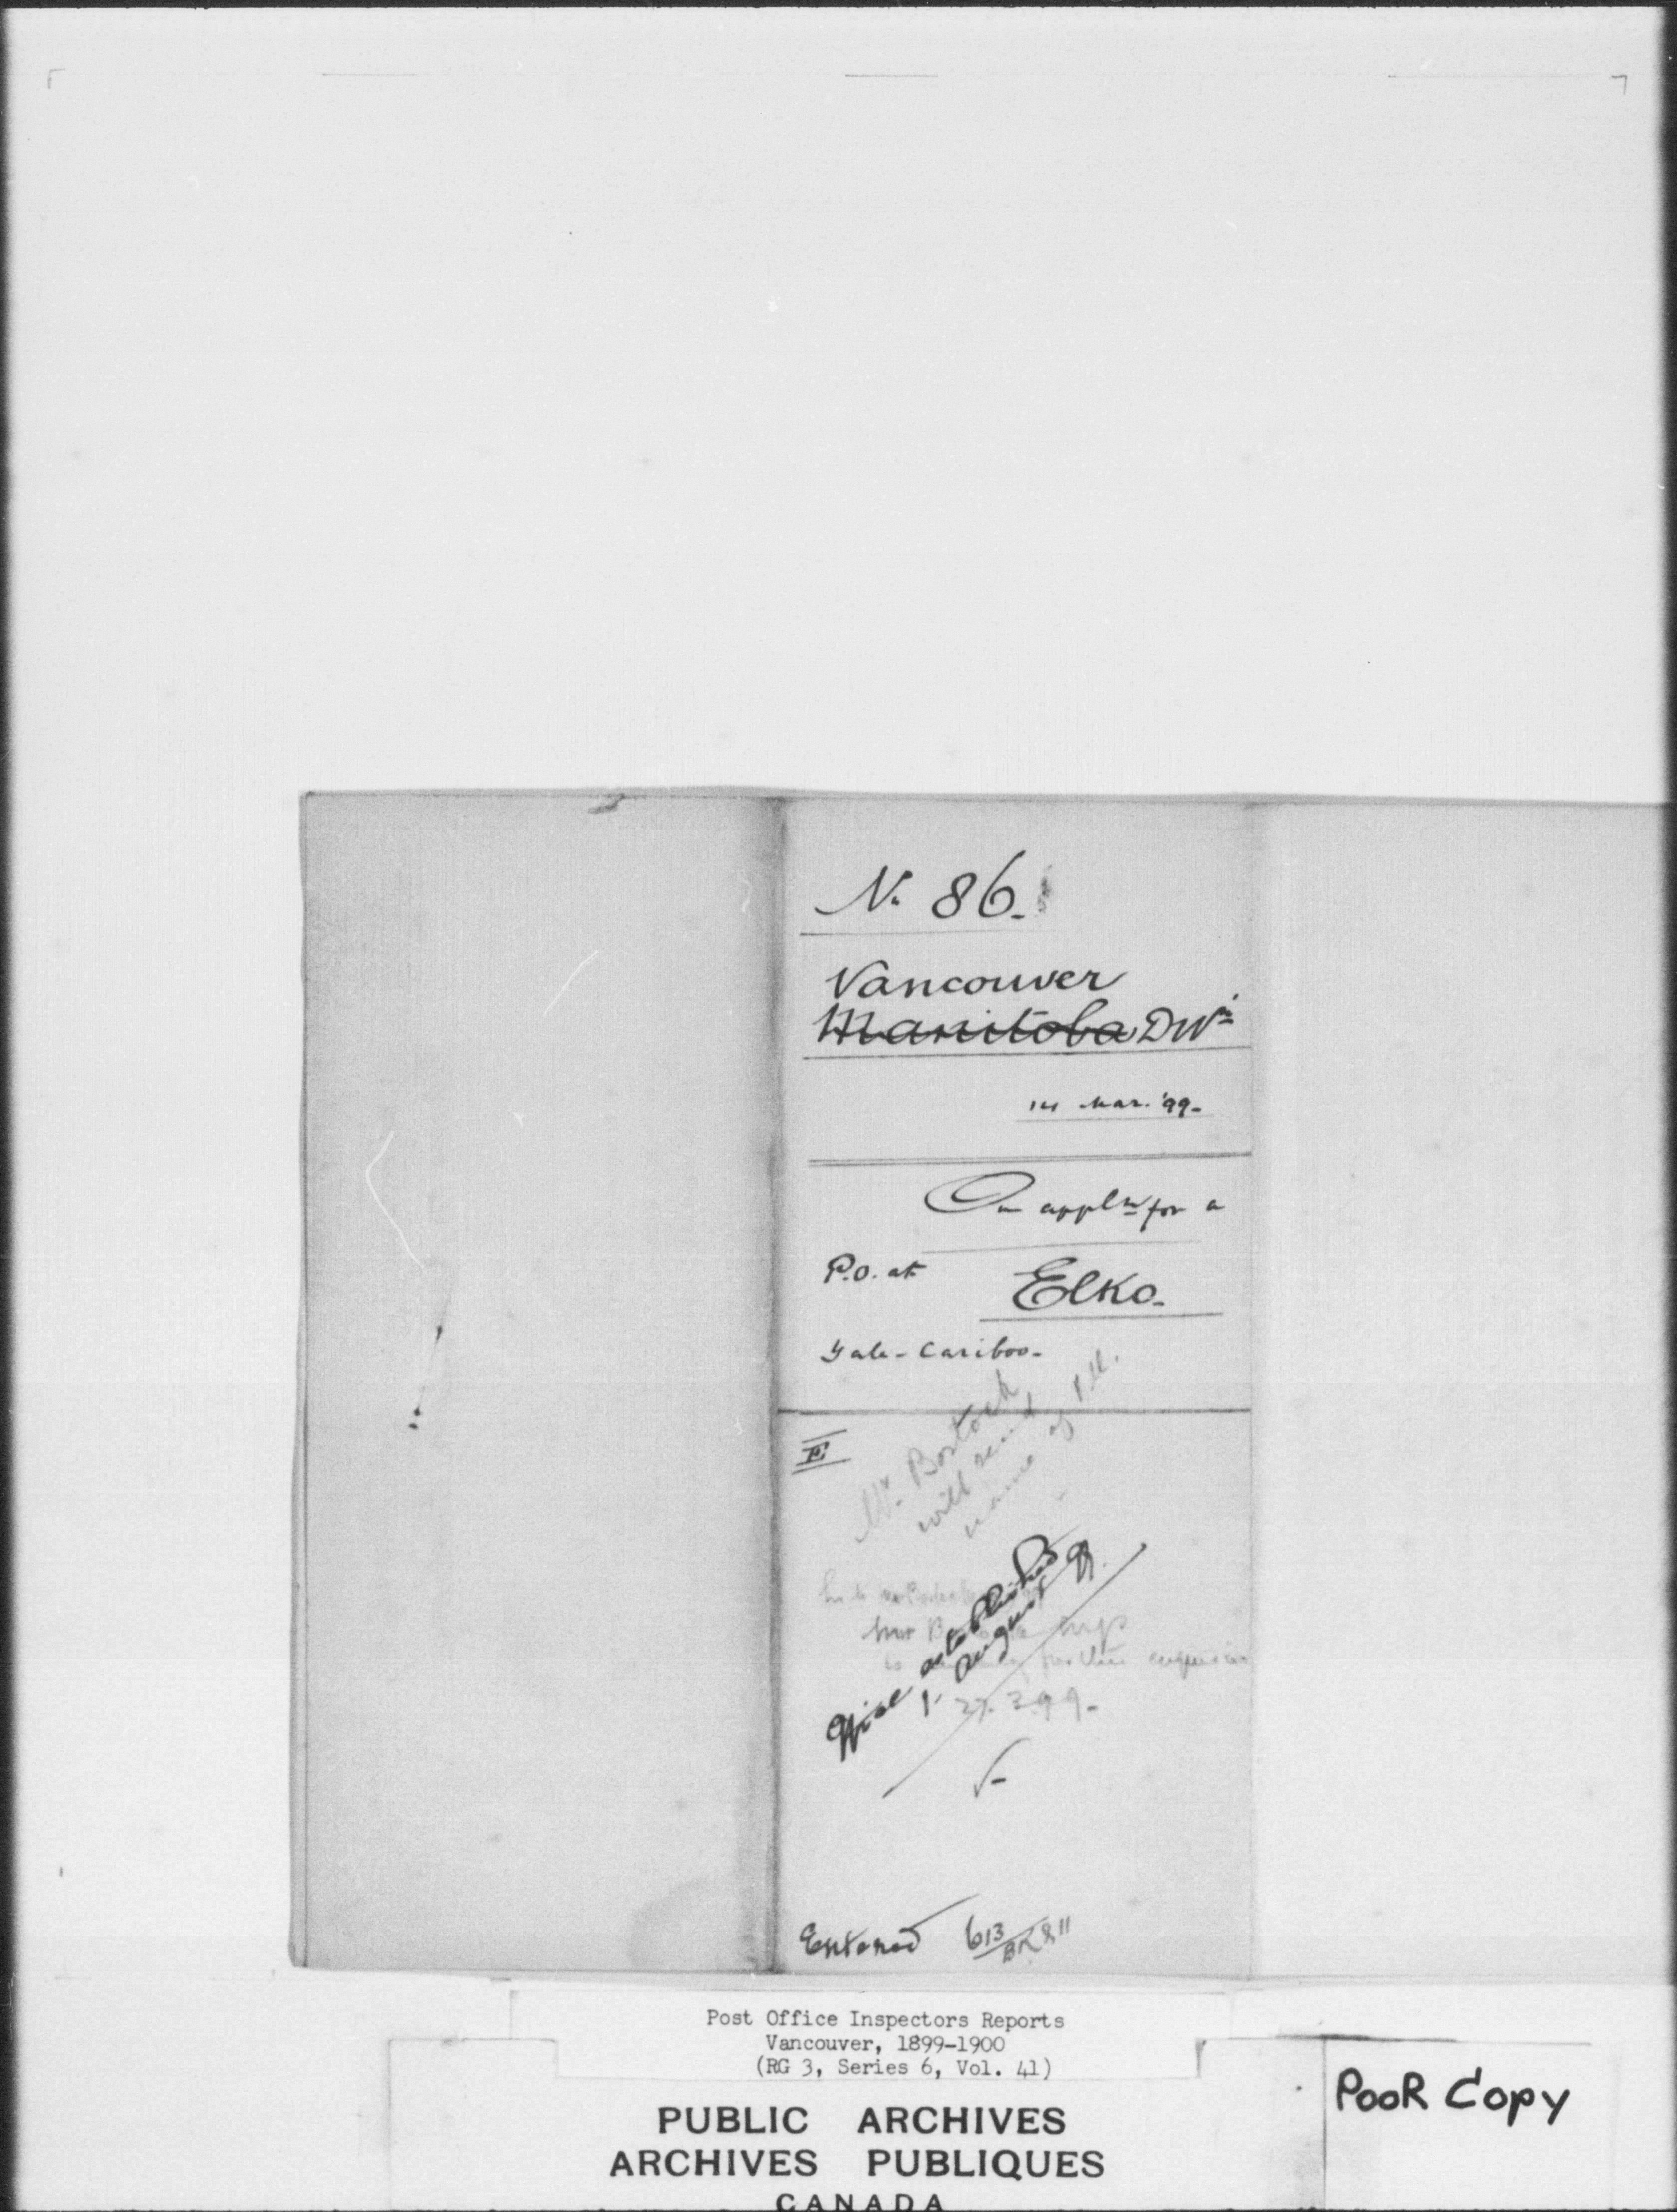 No. 86.
Vancouver
Manitoba Divn
14 Mar. '99.
On appln for a
P.O. at Elko.
Yale-Cariboo.
E
Mr. Bostock
will send
name of P.M.
Office established
1 August 99.
Mr
27.3.99.
Entered 613
Post Office Inspectors Reports
Vancouver, 1899-1900
(RG 3, Series 6, Vol. 41)
PUBLIC ARCHIVES
ARCHIVES PUBLIQUES
CANADA
POOR COPY